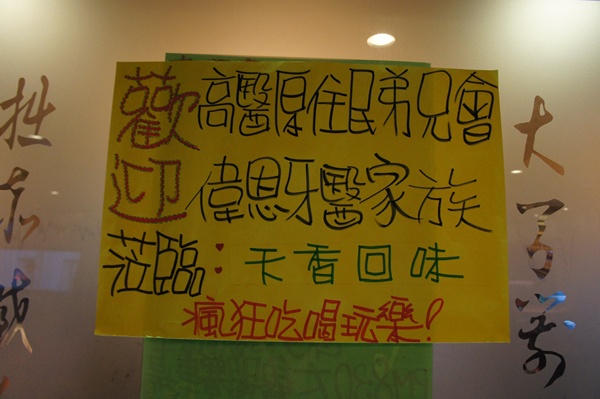 歡高醫原住民弟兄會
迎偉恩牙醫家族
蒞臨:天香回味
瘋狂吃喝玩樂!